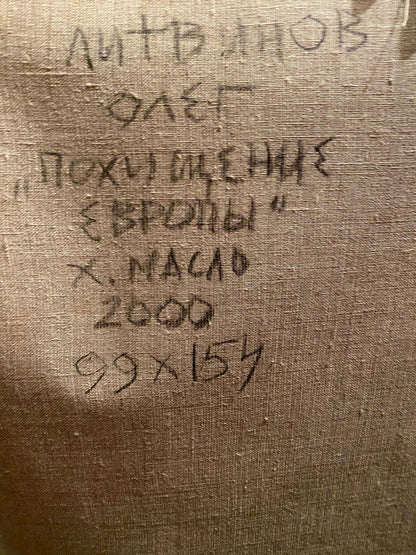 ЛИТВИНОВ
ОЛЕГ
„ПОХИЩЕНИЕ
ЕВРОПЫ"
Х. МАСЛО
2000
99х154